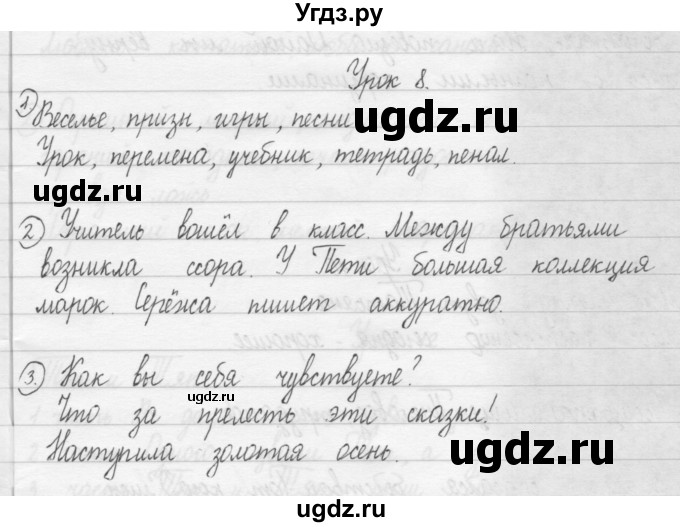 Угдз.ру
Урок 8.
1) Веселье, призы, игры, песни
ugdz.ru
Урок, перемена, учебник, тетрадь, пенал.
ugdz.ru
2) Учитель вошёл в класс. Между братьями
возникла ссора. У Пети большая коллекция
марок. Серёжа пишет аккуратно.
3. Как вы себя чувствуете?
ugdz.ru
Что за прелесть эти сказки!
Наступила золотая осень.
ugdz.ru
ugdz.ru